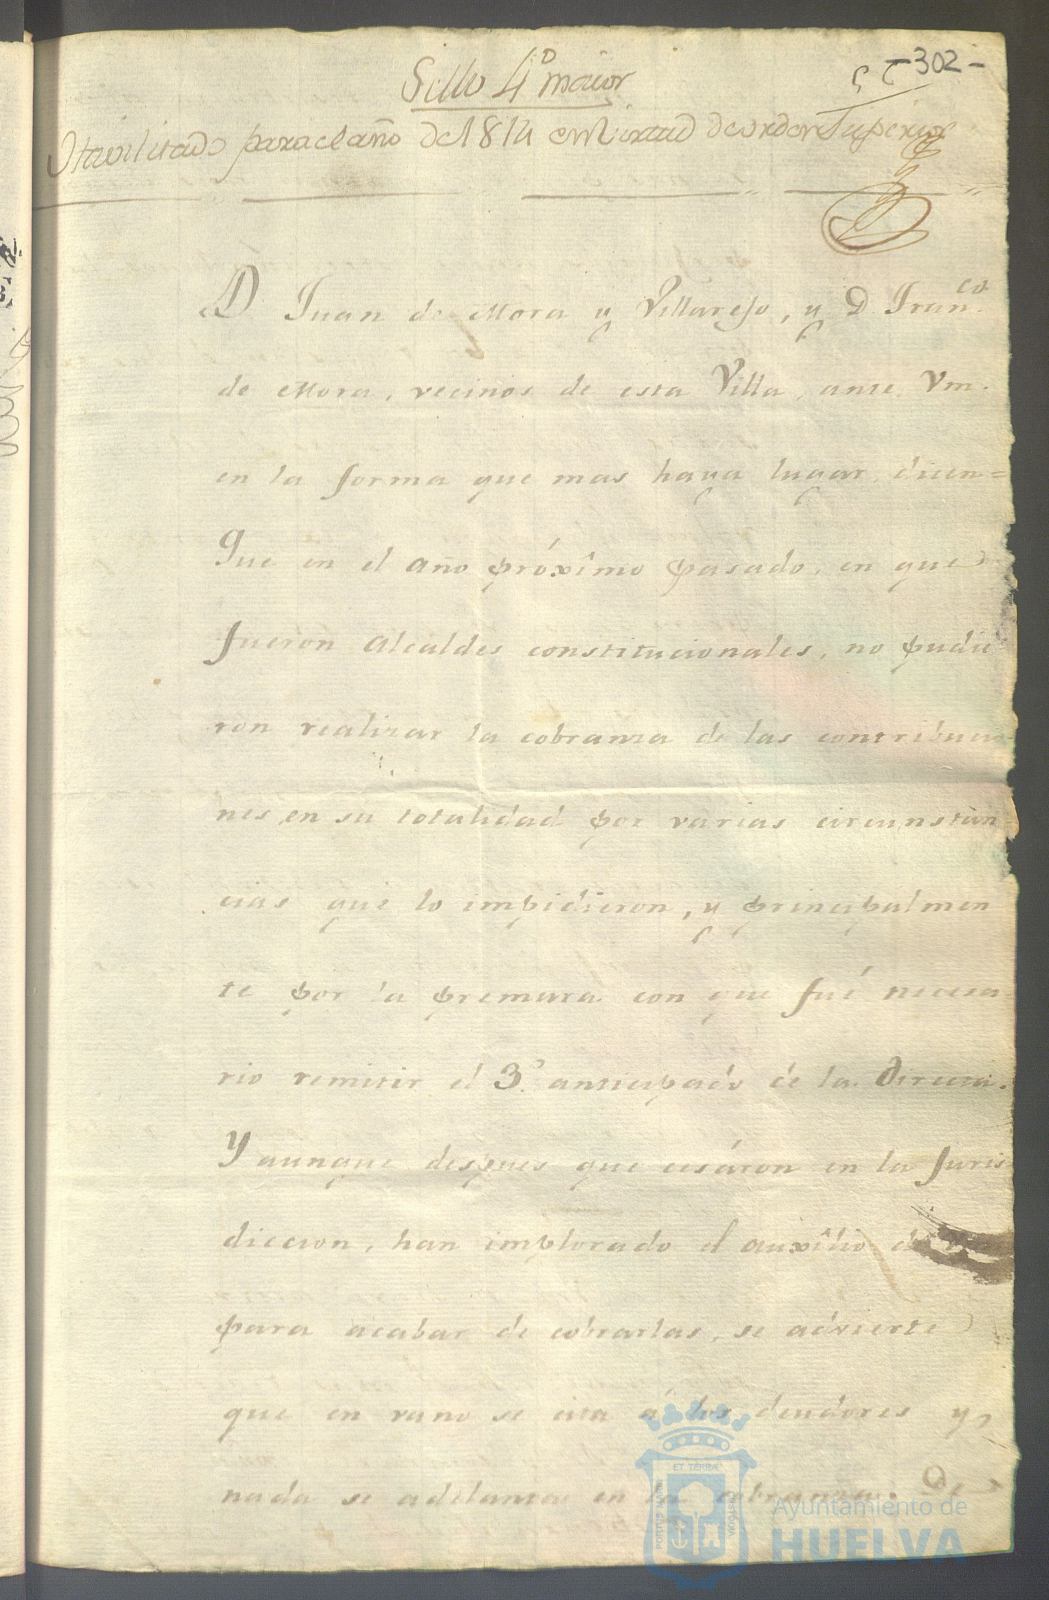 -302-
Sello 4º maior
Havilitado para el año de 1814 en Virtud de orden Superior
D Juan de Mora y Villarejo, y D. Franco.
de Mora, vecinos de esta Villa, ante Vm.
en la forma que mas haya lugar dicen=
Que en el año próxîmo pasado, en que
fueron Alcaldes constitucionales, no pudie
ron realizar la cobranza de las contribucio
nes en su totalidad por varias circunstan
cias que lo impidieron, y principalmen
te por la premura con que fué necesa
rio remitir el 3º anticipado de la Directa.
Y aunque despues que cesáron en la Juris
diccion, han implorado el auxîlio de
para acabar de cobrarlas, se advierte
que en vano se cita á los deudores y
nada se adelanta en la cobranza. De
ET TERRÆ
PORTUS MARIS
CUSTODIA
Ayuntamiento de
HUELVA